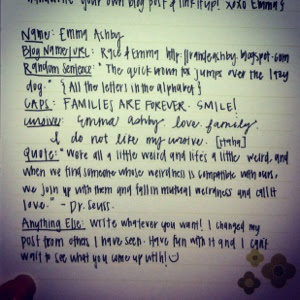 handwrite your own blog post & link it up! xoxo Emma {
Name: Emma Ashby
Blog Name/URL: Race & Emma http://randeashby.blogspot.com
Random Sentence: "The quick brown fox jumps over the lazy
dog." { All the letters in the alphabet }
CAPS: FAMILIES ARE FOREVER. SMILE!
cursive: Emma Ashby love family.
I do not like my cursive. [haha]
quote: "We're all a little weird and life's a little weird, and
when we find someone whose weirdness is compatible with ours,
we join up with them and fall in mutual weirdness and call it
love." - Dr. Seuss.
Anything Else: Write whatever you want! I changed my
post from others I have seen. Have fun with it and I can't
wait to see what you come up with!